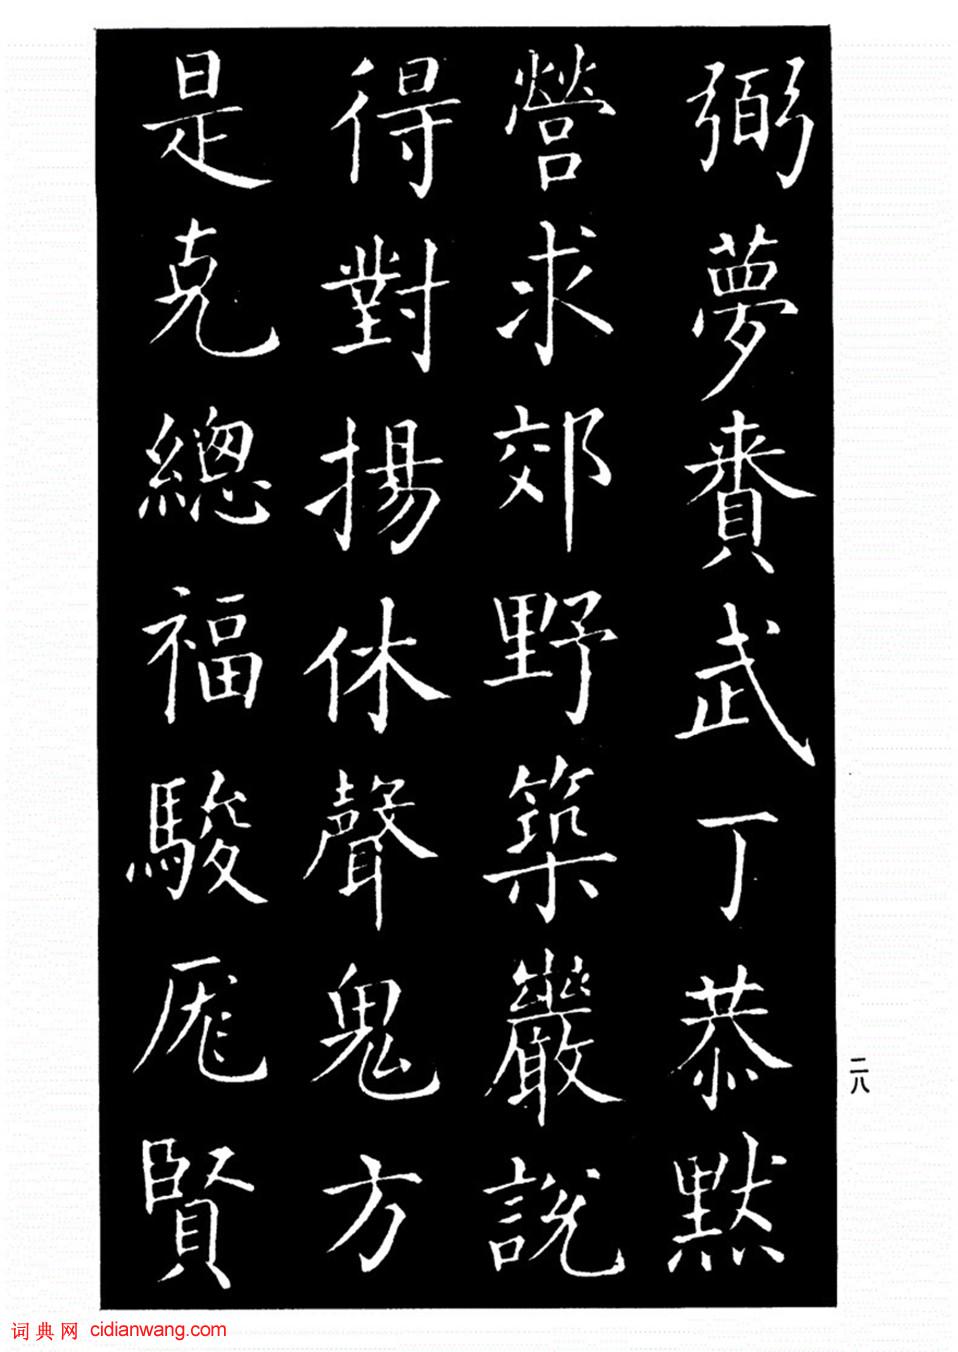 弼夢賚武丁恭默
營求郊野築巖說
得對揚休聲鬼方
是克總福駿厖賢
二八
词典网 cidianwang.com